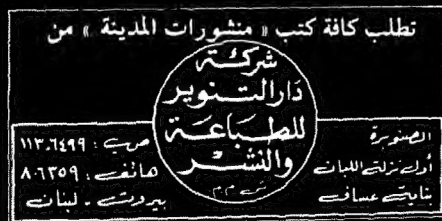 تطلب كافة كتب « منشورات المدينة » من
شركة
دار التنوير
للطباعة
والنشر
ش.م.م
الصنوبرة
أول نزلة اللبان
بناية عساف
ص.ب : ١١٣،٦٤٩٩
هاتف : ٨٠٦٣٥٩
بيروت - لبنان